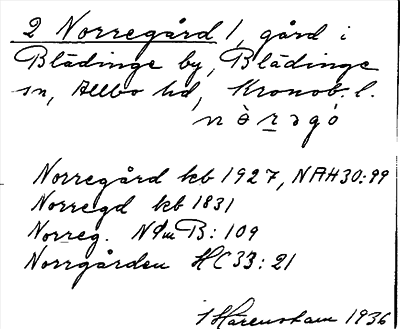 2 Norregård 1, gård i
Blädinge by, Blädinge
sn, Allbo hd, Kronob. l.
nòrəgó
Norregård kb 1927, NAH30:99
Norregd kb 1831
Norreg. NdmB: 109
Norrgården HC33: 21
1936